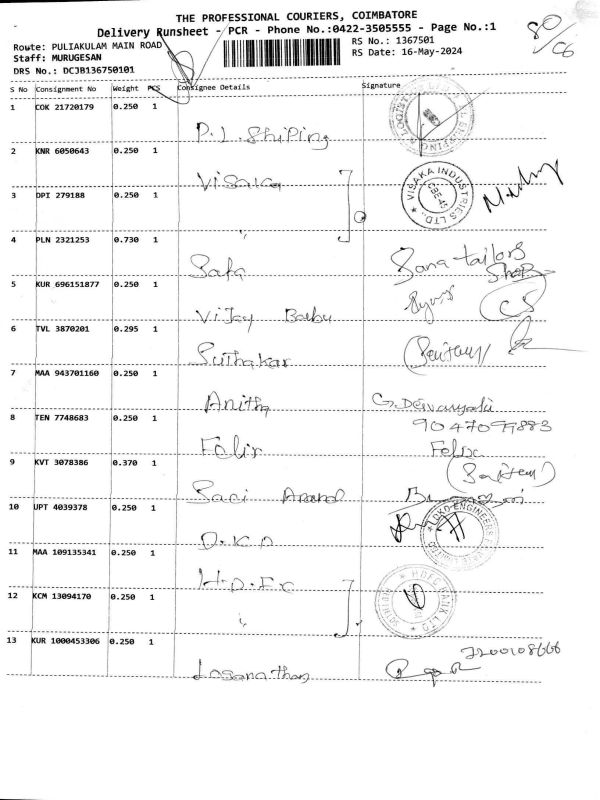 THE PROFESSIONAL COURIERS, COIMBATORE
Delivery Runsheet - PCR - Phone No.:0422-3505555 - Page No.:1
80/C6
Route: PULIAKULAM MAIN ROAD RS No.: 1367501
Staff: MURUGESAN RS Date: 16-May-2024
DRS No.: DCJB136750101
S No Consignment No Weight PCS Consignee Details Signature
1 COK 21720179 0.250 1
P.L. Shiping
2 KNR 6050643 0.250 1
Visaka
VISAKA INDUSTRIES LTD., CBE-45
3 DPI 279188 0.250 1
"
4 PLN 2321253 0.730 1
Sana tailors
Shop
5 KUR 696151877 0.250 1
Vijay Babu
6 TVL 3870201 0.295 1
Suthakar
7 MAA 943701160 0.250 1
Anitha
8 TEN 7748683 0.250 1
Felix Felix
9 KVT 3078386 0.370 1
Anand
10 UPT 4039378 0.250 1
LOKO ENGINEERS
11 MAA 109135341 0.250 1
H.D.F.C
12 KCM 13094170 0.250 1
HDFC BANK LTD
"
13 KUR 1000453306 0.250 1
7200108666
Losanathan